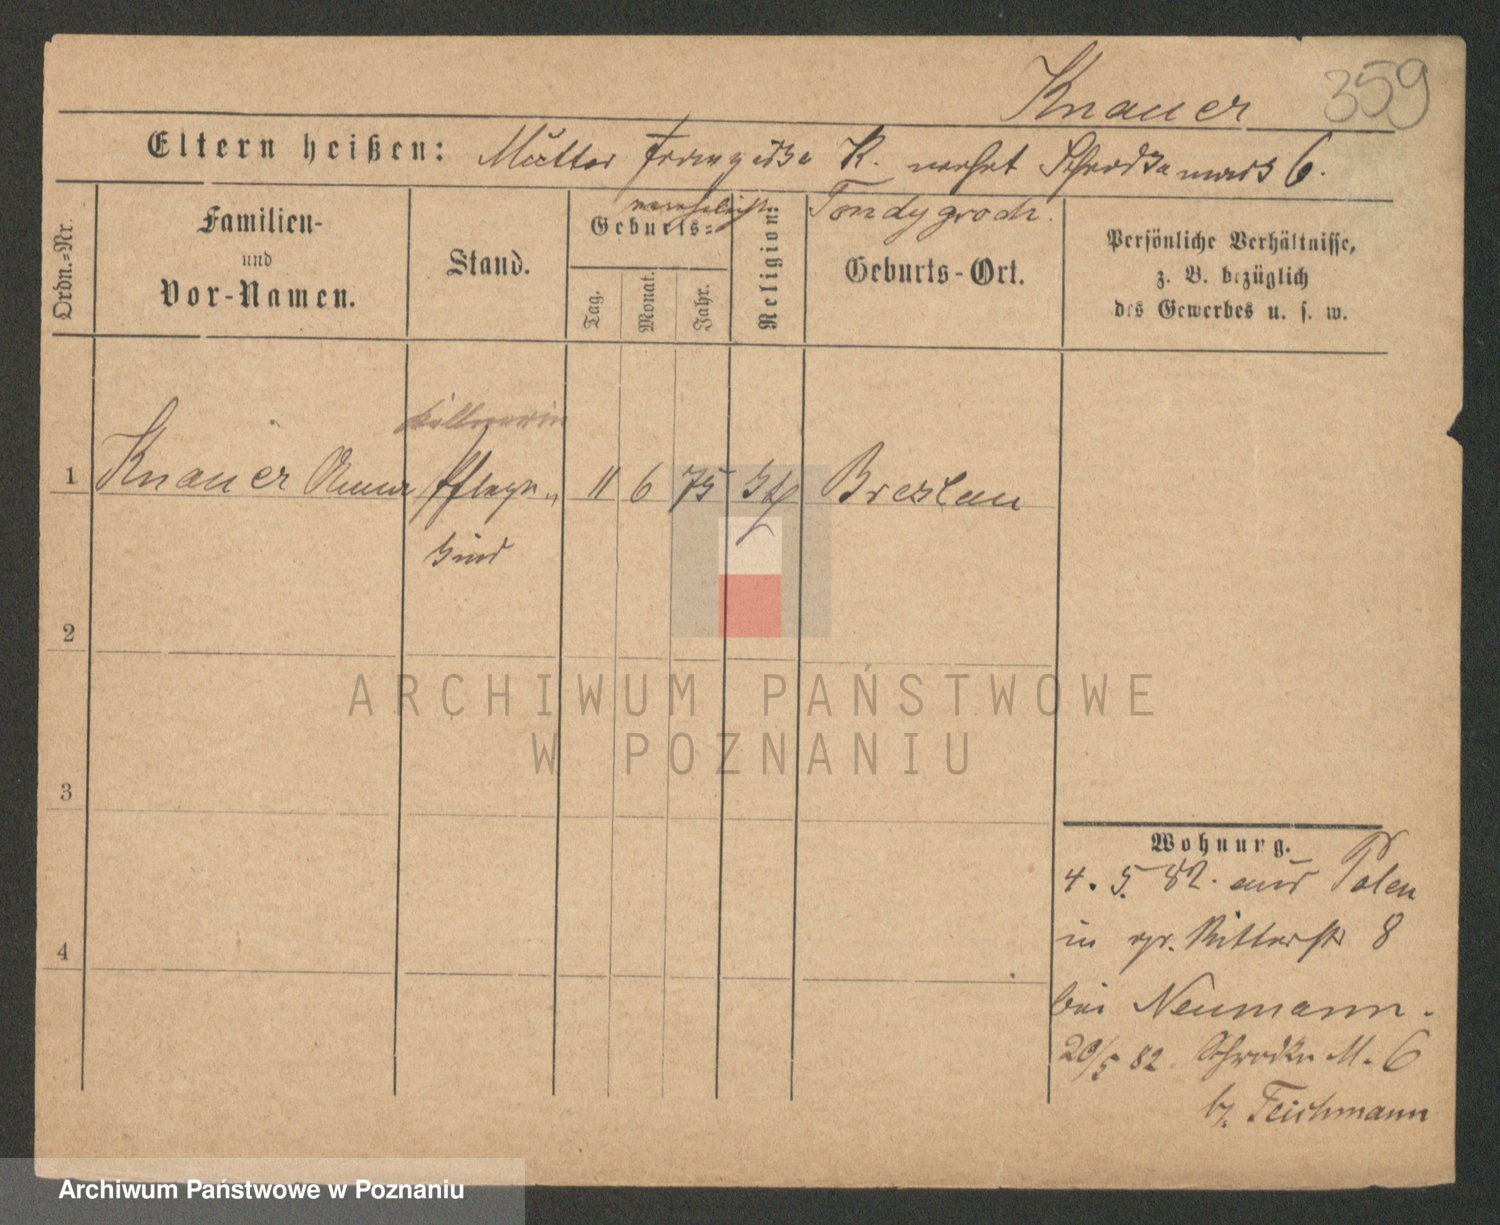 359
Knauer
Eltern heißen: Mutter Franziska K. wohnt Schrodkamark 6.
verehelicht Tondygroch.
Ordn.=Nr.
Familien-
und
Vor-Namen.
Stand.
Geburts=
Tag.
Monat.
Jahr.
Religion:
Geburts-Ort.
Persönliche Verhältnisse,
z. B. bezüglich
des Gewerbes u. s. w.
Kellnerin
1 Knauer Anna Pflege- 11 6 75 kth Breslau
kind
2
3
4
Wohnung.
4. 5. 82. aus Polen
in Ritterstr 8
bei Neumann.
20/5 82. Schrodka M. 6
b. Teichmann
ARCHIWUM PAŃSTWOWE
W POZNANIU
Archiwum Państwowe w Poznaniu